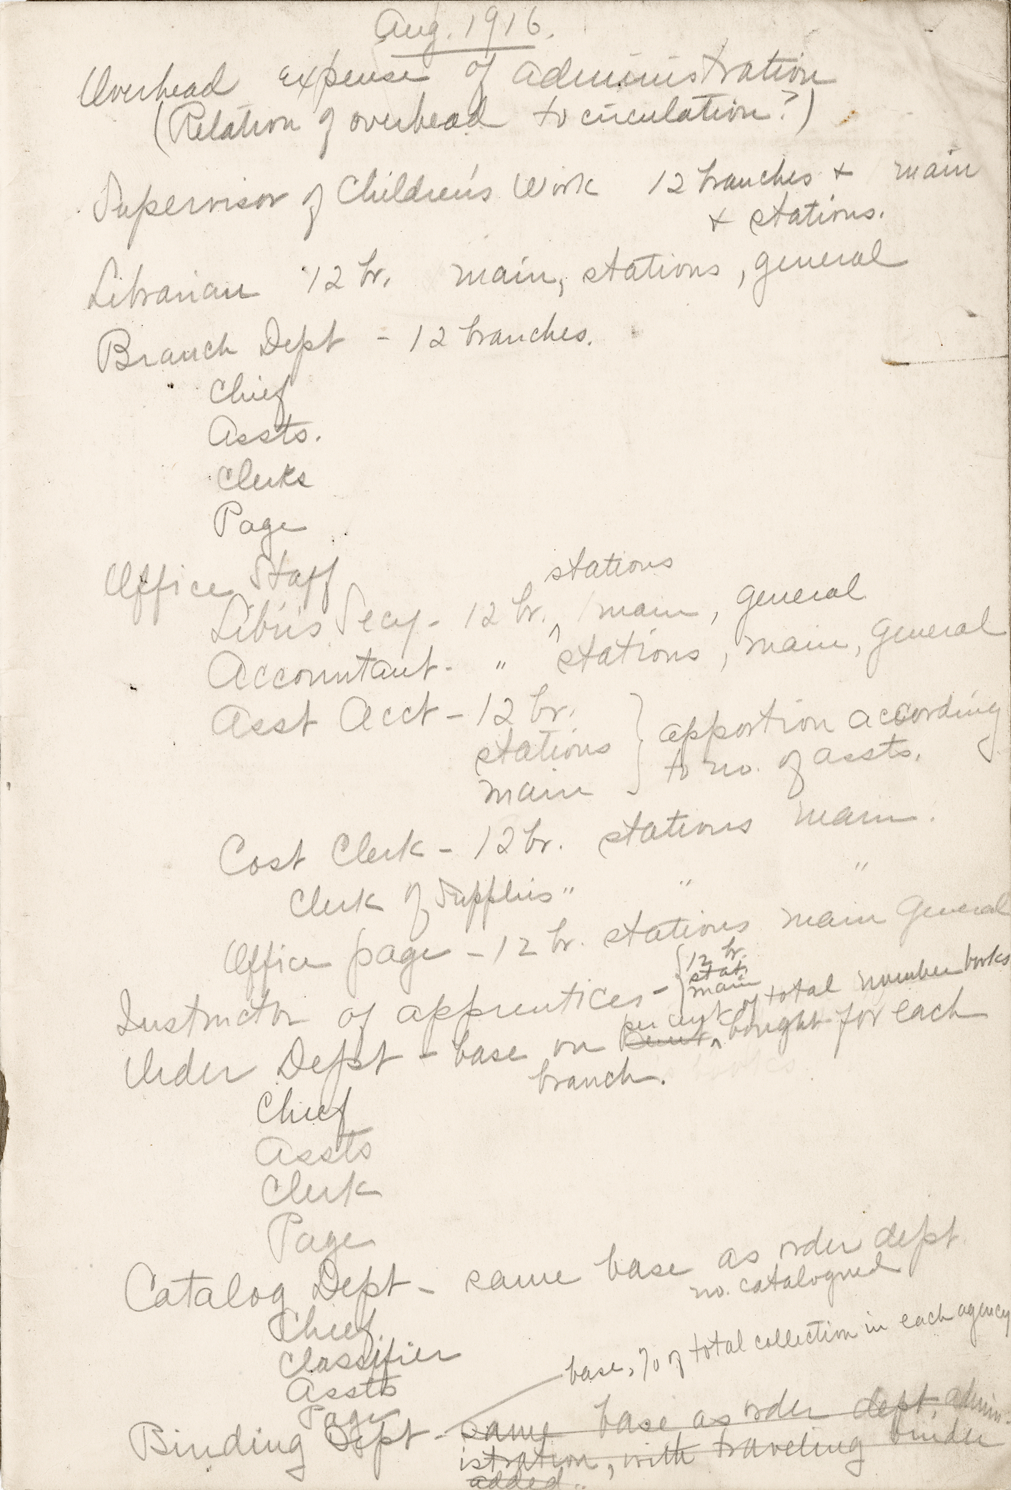 Aug. 1916.
Overhead expense of administration
(Relation of overhead to circulation?)
Supervisor of Children's Work 12 branches + main
+ stations.
Librarian 12 br. main, stations, general
Branch Dept - 12 branches.
Chief
Assts.
Clerks
Page
Office Staff
stations
Libn's Secy - 12 br. ^ main, general
Accountant - " stations, main, general
Asst Acct - 12 br.
stations
main
} apportion according
to no. of assts.
Cost Clerk - 12 br. stations main.
Clerk of Supplies " " "
Office page - 12 br. stations main general
Instructor of apprentices - { 12 br.
stat.
main
per cent of total number books
Order Dept - base on ^ bought for each
branch.
Chief
Assts
Clerk
Page
Catalog Dept - same base as order dept
no. catalogued
Chief
Classifier
Assts
Page
base, % of total collection in each agency
Binding Dept - same base as order dept, admin-
istration, with traveling binder
added.